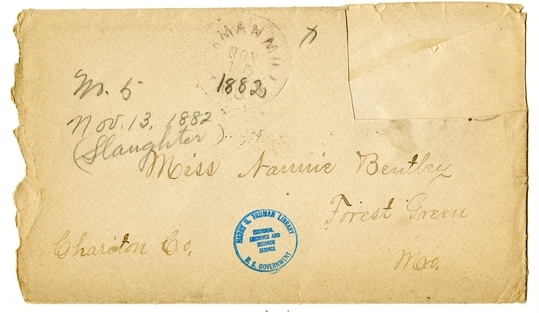 MANMI
NOV
1882
M. 5
Nov. 13, 1882
(Slaughter)
Miss Nannie Bentley
Forest Green
Chariton Co.
Mo.
HARRY S. TRUMAN LIBRARY
NATIONAL
ARCHIVES AND
RECORDS
SERVICE
U. S. GOVERNMENT